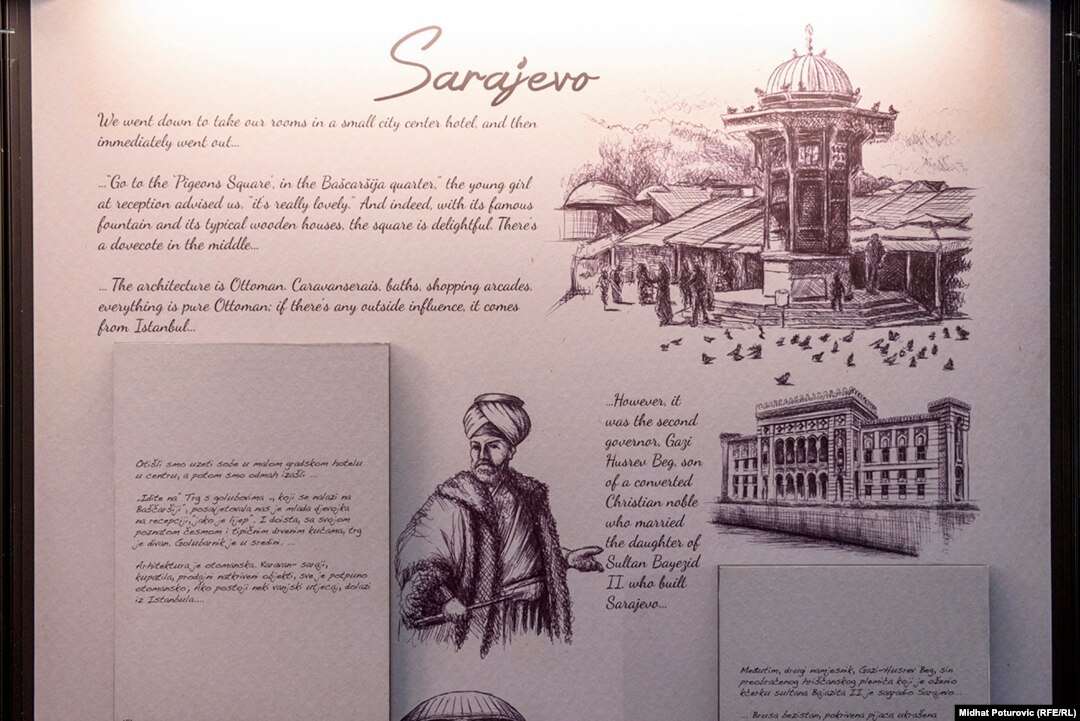 Sarajevo
We went down to take our rooms in a small city center hotel, and then
immediately went out...
..."Go to the 'Pigeons Square', in the Bašcaršija quarter," the young girl
at reception advised us, "it's really lovely." And indeed, with its famous
fountain and its typical wooden houses, the square is delightful. There's
a dovecote in the middle...
... The architecture is Ottoman. Caravanserais, baths, shopping arcades,
everything is pure Ottoman; if there's any outside influence, it comes
from Istanbul...
Otišli smo uzeti sobe u malom gradskom hotelu
u centru, a potom smo odmah izašli ...
„Idite na" Trg s golubovima „, koji se nalazi na
Baščaršiji", posavjetovala nas je mlada djevojka
na recepciji, "jako je lijep". I doista, sa svojom
poznatom česmom i tipičnim drvenim kućama, trg
je divan. Golubarnik je u sredini. ...
Arhitektura je otomanska. Karavan- saraji,
kupatila, prodajn natkriveni objekti, sve je potpuno
otomansko; Ako postoji neki vanjski utjecaj, dolazi
iz Istanbula....
...However, it
was the second
governor, Gazi
Husrev Beg, son
of a converted
Christian noble
who married
the daughter of
Sultan Bayezid
II, who built
Sarajevo...
Međutim, drugi namjesnik, Gazi-Husrev Beg, sin
preobraćenog hrišćanskog plemića koji je oženio
kćerku sultana Bajazita II je sagradio Sarajevo...
... Brusa bezistan, pokrivena pijaca ukrašena
Midhat Poturovic (RFE/RL)